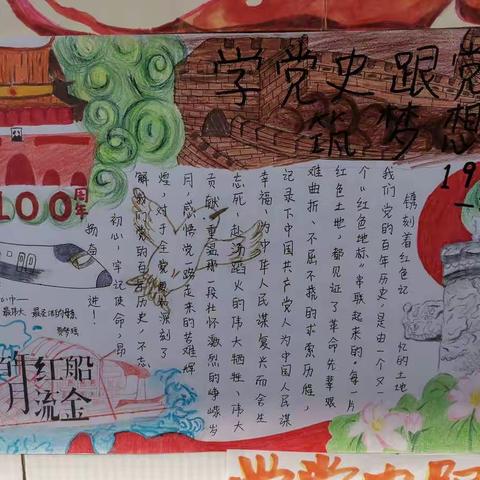 学党史跟党
筑梦想
19
镌刻着红色记忆的土地
我们党的百年历史,是由一个又一
个“红色地标”串联起来的。每一片
红色土地,都见证了革命先辈艰
难曲折、不屈不挠的求索历程,
记录下中国共产党人为中国人民谋
幸福、为中华人民谋复兴而舍生
志死、赴汤蹈火的伟大牺牲、伟大
贡献。重温那一段壮怀激烈的峥嵘岁
月,感悟党一路走来的苦难辉
煌,对于全党
解我们党的百年历史,不忘
初心,牢记使命,昂
扬奋进!
100周年
最伟大
红船
流金
学党史